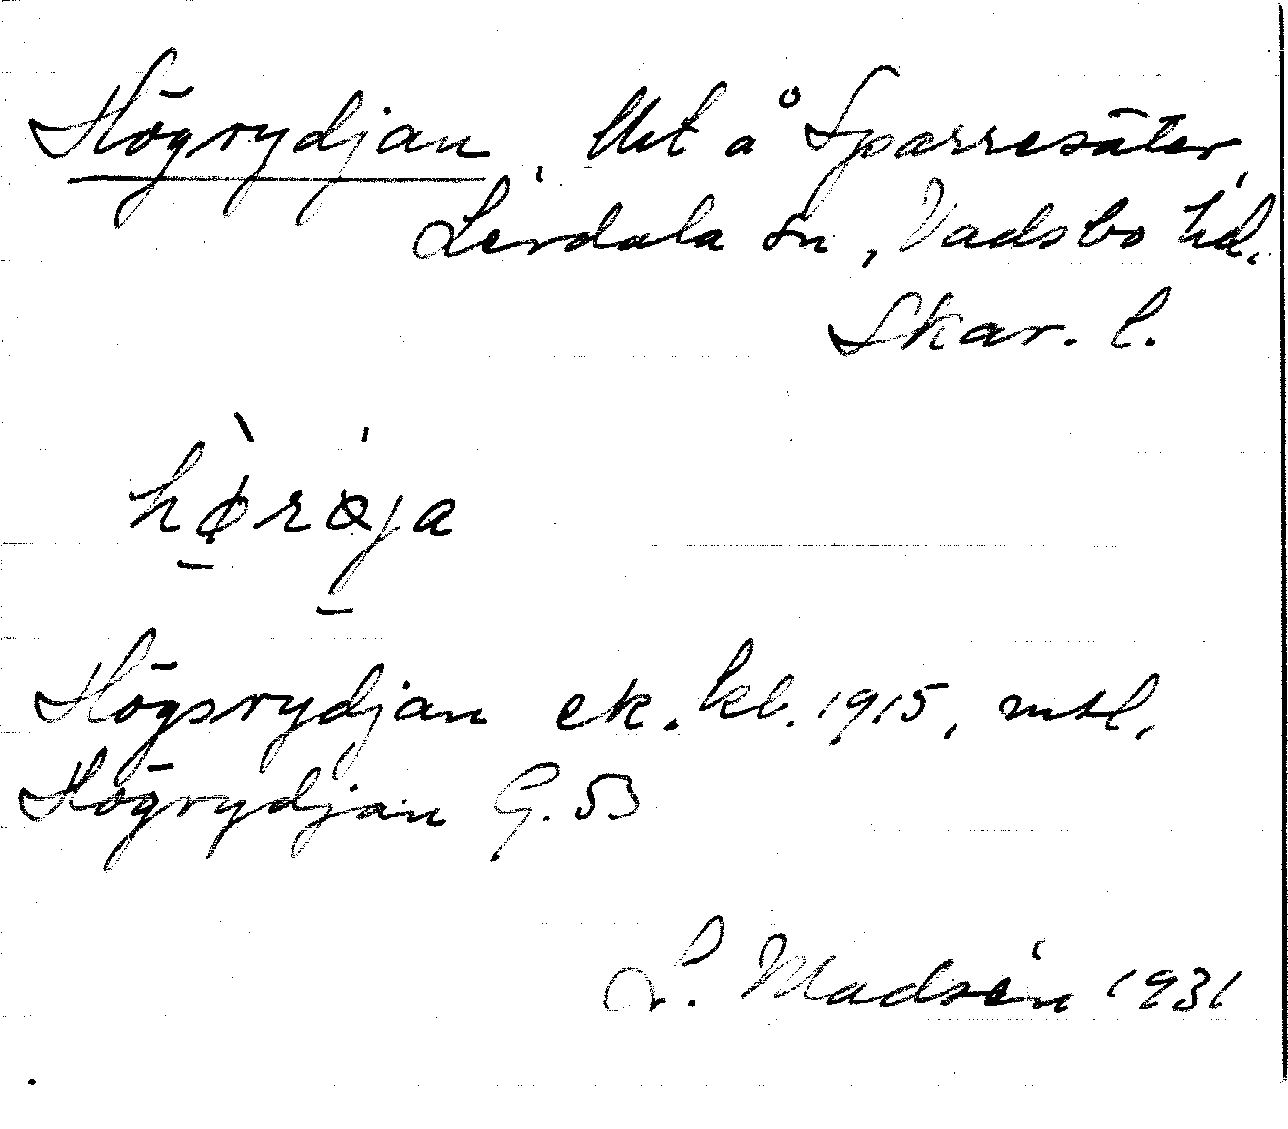 Högrydjan, Utt å Sparresäter,
Lerdala sn, Vadsbo hd.
Skar. l.
hø̀rø̀ja
Högsrydjan ek. kbl. 1915, mtl,
Högrydjan G. 53
L. Madsén 1931